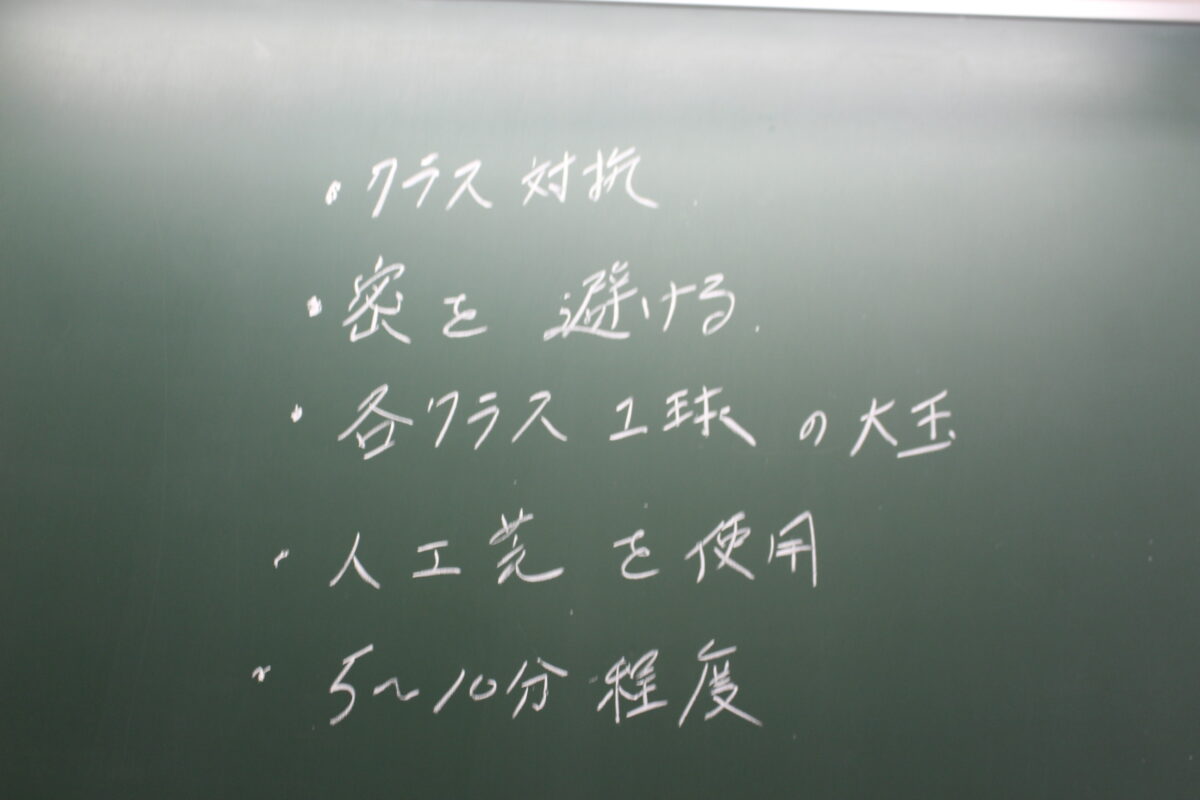 ・クラス対抗.
・密を避ける.
・各クラス1球の大玉
・人工芝を使用
・5〜10分程度